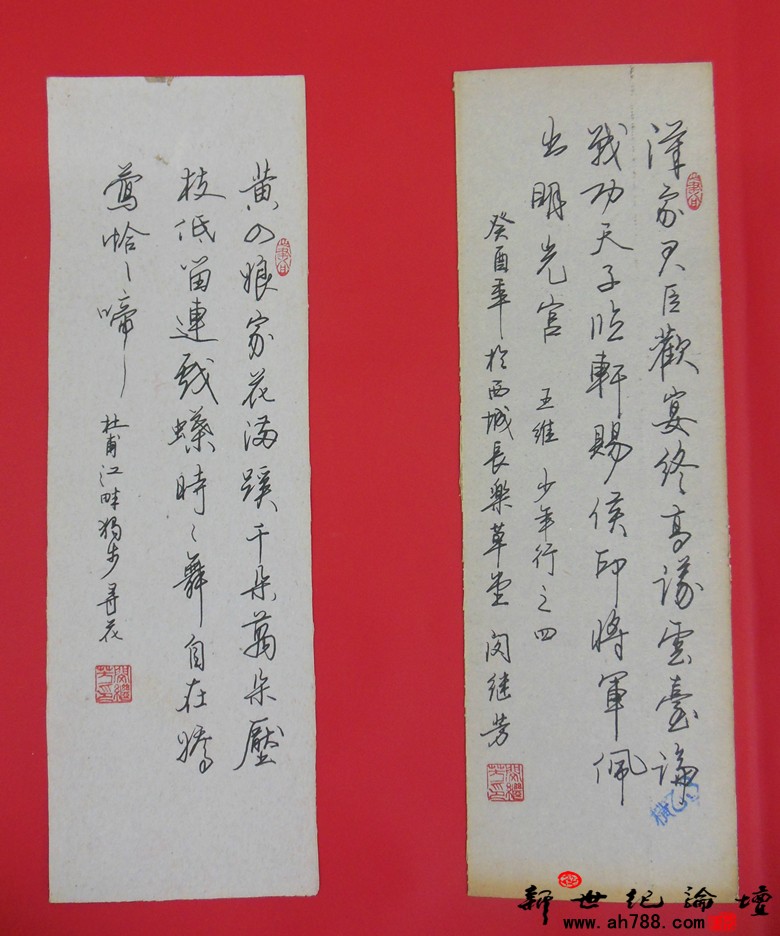 漢家君臣歡宴終高議雲臺論
戰功天子臨軒賜侯印將軍佩
出明光宮 王維 少年行之四
癸酉年於西城長樂草堂 闵继芳
黄四娘家花满蹊千朵萬朵壓
枝低留連戏蝶時〻舞自在娇
鶯恰〻啼〻 杜甫江畔獨步尋花
新世纪論壇
www.ah788.com